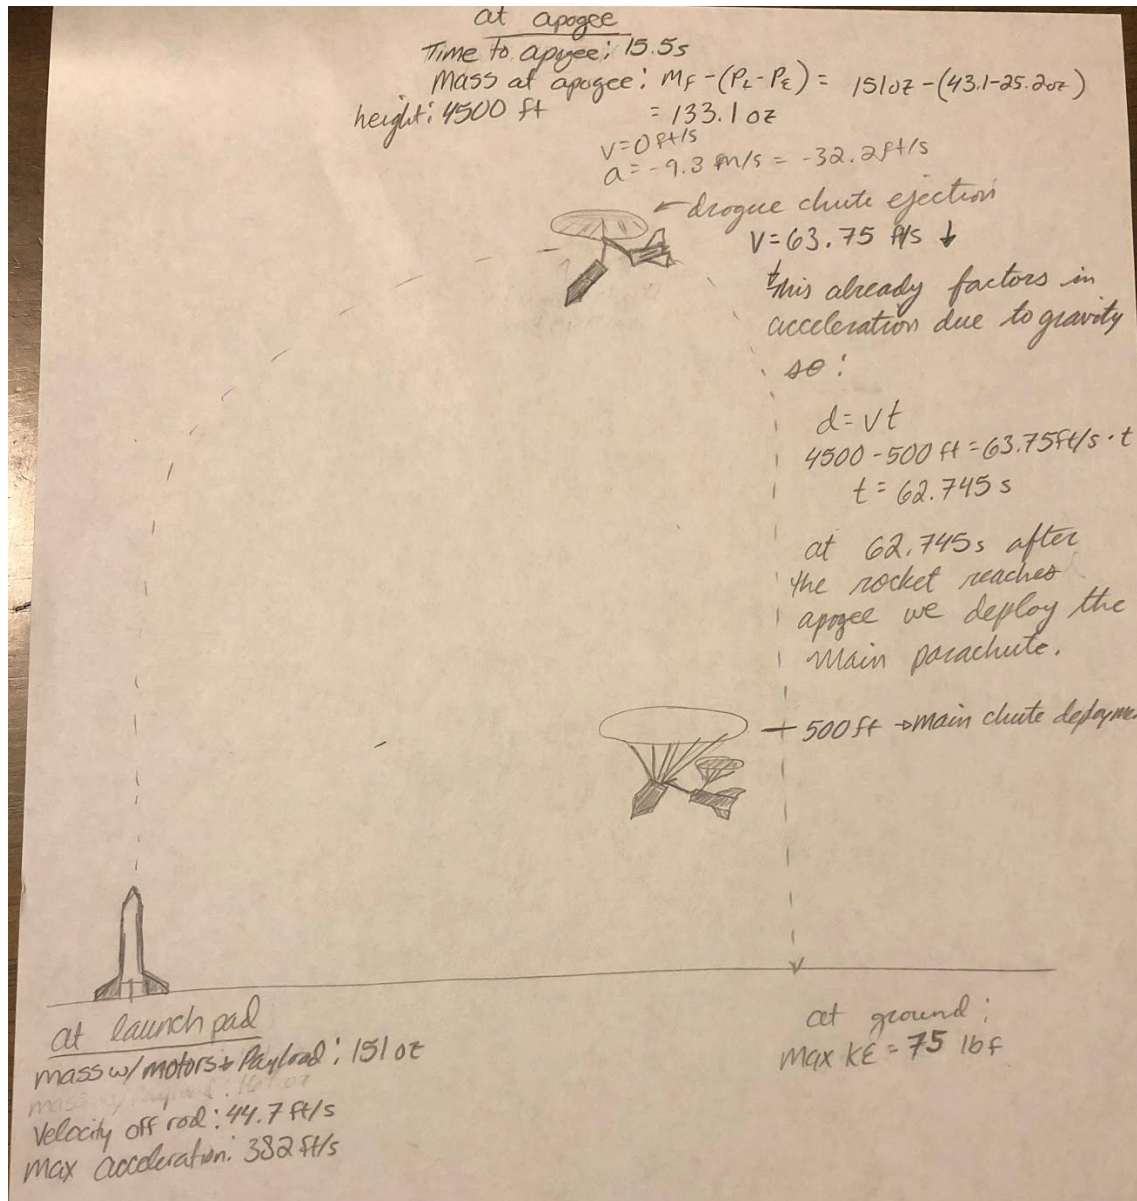 at apogee
Time to apogee: 15.5s
Mass at apogee: MF-(PL-PE) = 151oz-(43.1-25.2oz)
= 133.1 oz
height: 4500 ft
v=0ft/s
a=-9.8 m/s = -32.2ft/s
←drogue chute ejection
V=63.75 ft/s ↓
this already factors in
acceleration due to gravity
so:
d=vt
4500-500 ft=63.75ft/s·t
t=62.745 s
at 62.745s after
the rocket reaches
apogee we deploy the
Main parachute.
500ft →main chute deployme
at launch pad
mass w/ motors + Payload: 151oz
Velocity off rod: 44.7 ft/s
max acceleration: 382 ft/s
at ground:
Max KE = 75 lbf